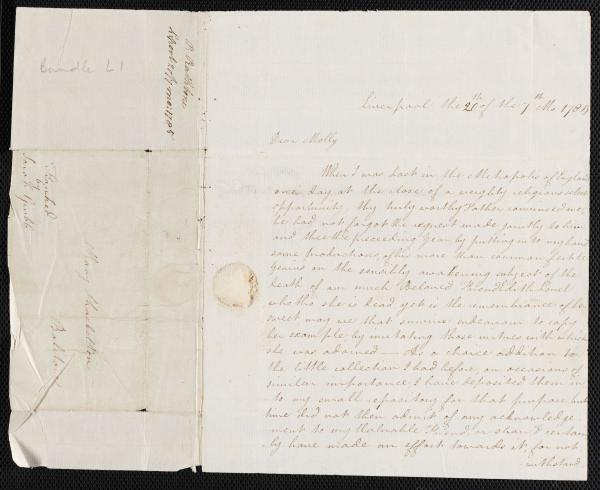 Bundle L1
R. Ralston
Liverpool the 20th of the 7th Mo 178
Dear Molly
When I was last in the Metropolis of England
one day at the close of a weighty religious select
opportunity, thy truly worthy Father convinced me,
he had not forgot the request made jointly to him
and thee the preceeding Year, by putting into my hand
some productions, of his more than common fertile
Genius on the sensibly awakening subject of the
Death of our much Beloved Friend Edith Lovel
who tho she is dead yet is the remembrance of her
sweet may we that survive endeavour to copy
her example by imitating those virtues with which
she was adorned — As a choice addition to
the little collection I had before, on occasions of
similar importance I have deposited them in
to my small repository for that purpose, but
time did not then admit of any acknowledge
ment to my Valuable Friend, or else I certain
ly have made an effort towards it, for not
withstand
Mary